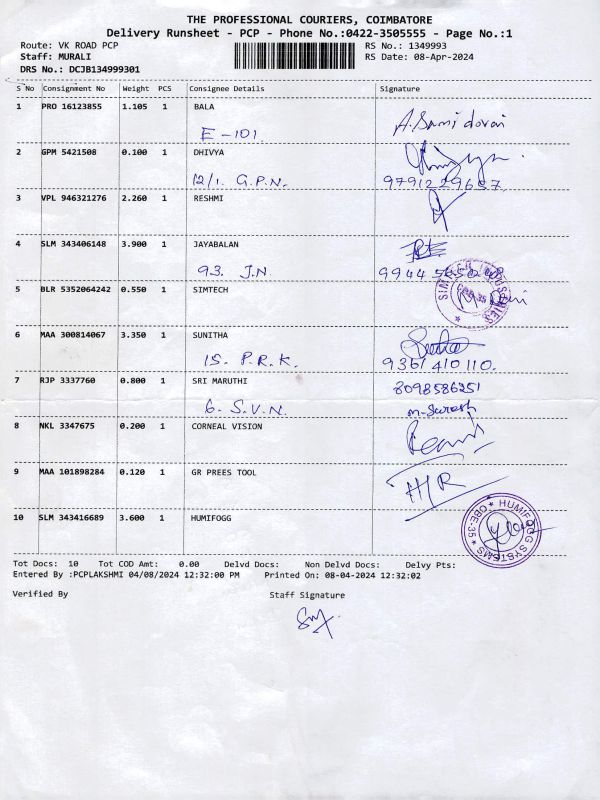 THE PROFESSIONAL COURIERS, COIMBATORE
Delivery Runsheet - PCP - Phone No.:0422-3505555 - Page No.:1
Route: VK ROAD PCP RS No.: 1349993
Staff: MURALI RS Date: 08-Apr-2024
DRS No.: DCJB134999301
S No Consignment No Weight PCS Consignee Details Signature
1 PRO 16123855 1.105 1 BALA
E-101 A. Samidorai
2 GPM 5421508 0.100 1 DHIVYA
12/1. G.P.N.
3 VPL 946321276 2.260 1 RESHMI
4 SLM 343406148 3.900 1 JAYABALAN
93. J.N
5 BLR 5352064242 0.550 1 SIMTECH
6 MAA 300814067 3.350 1 SUNITHA
15. P.R.K. 9361410110.
7 RJP 3337760 0.800 1 SRI MARUTHI 8098586251
6. S.V.N. m. Suresh
8 NKL 3347675 0.200 1 CORNEAL VISION
9 MAA 101898284 0.120 1 GR PREES TOOL
H/R
10 SLM 343416689 3.600 1 HUMIFOGG
HUMIFOGG SYSTEMS * CBE-35 *
Tot Docs: 10 Tot COD Amt: 0.00 Delvd Docs: Non Delvd Docs: Delvy Pts:
Entered By :PCPLAKSHMI 04/08/2024 12:32:00 PM Printed On: 08-04-2024 12:32:02
Verified By Staff Signature